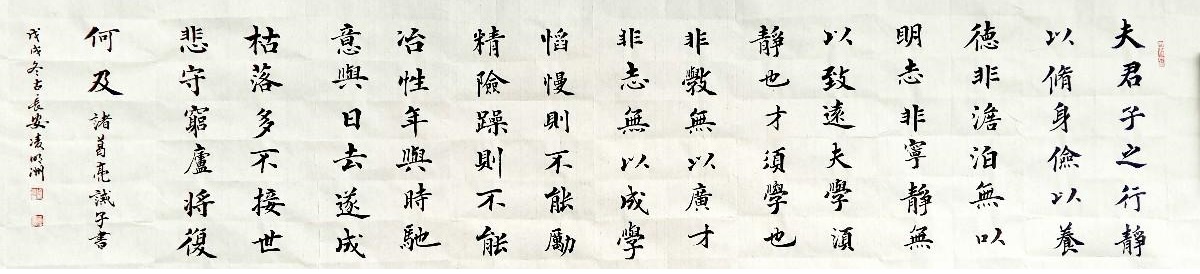 夫君子之行靜
以脩身儉以養
德非澹泊無以
明志非寧靜無
以致遠夫學須
靜也才須學也
非斆無以廣才
非志無以成學
慆慢則不能勵
精險躁則不能
冶性年與時馳
意與日去遂成
枯落多不接世
悲守窮廬將復
何及 諸葛亮誡子書
戊戌冬古長安凌明洲